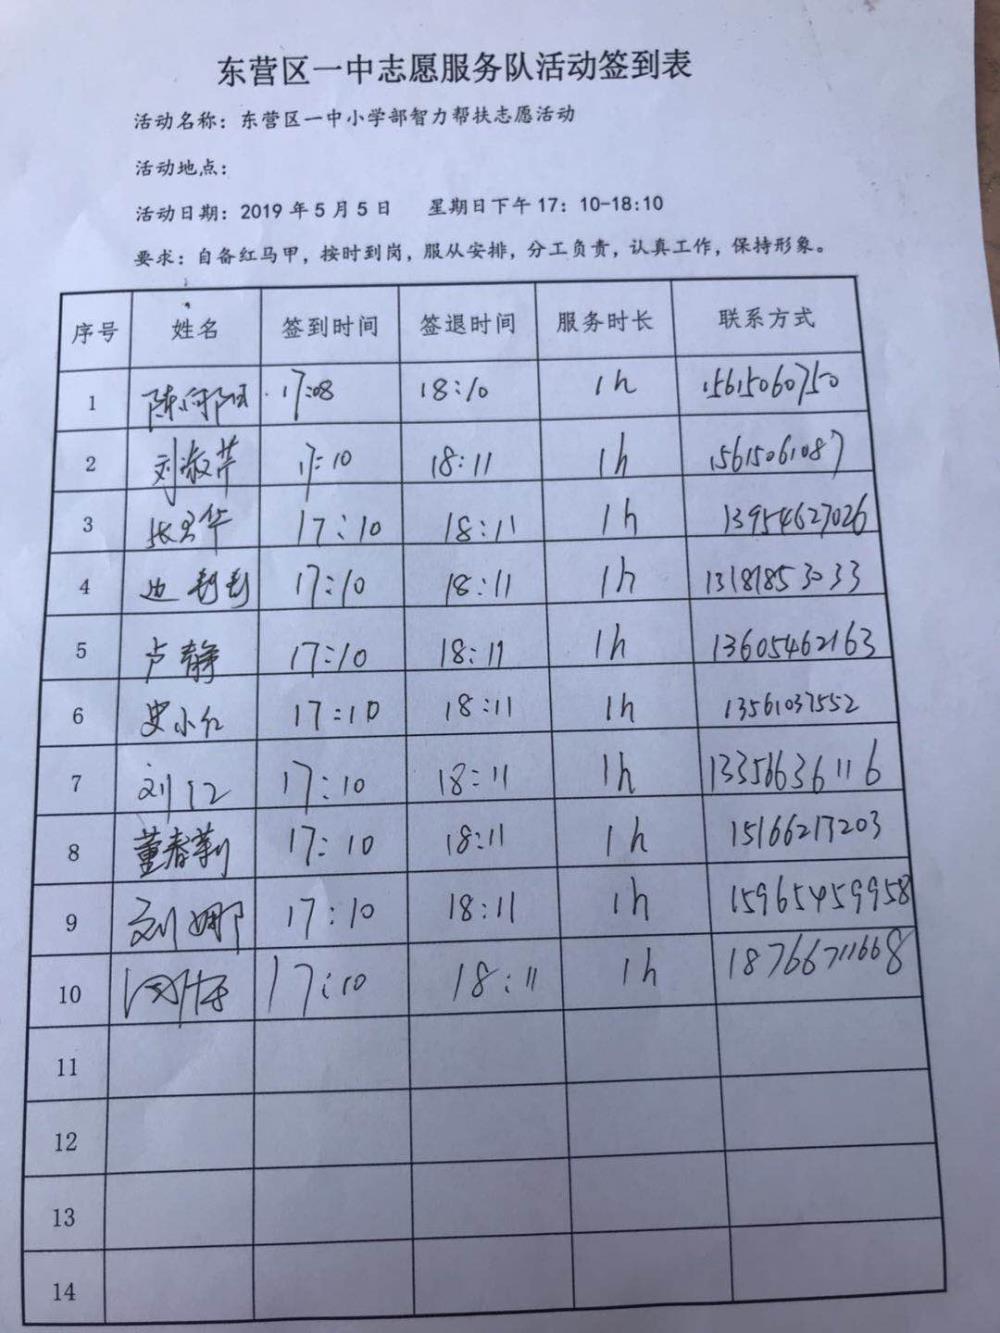 东营区一中志愿服务队活动签到表
活动名称：东营区一中小学部智力帮扶志愿活动
活动地点：
活动日期：2019年5月5日 星期日下午17：10-18:10
要求：自备红马甲，按时到岗，服从安排，分工负责，认真工作，保持形象。
序号 姓名 签到时间 签退时间 服务时长 联系方式
1 17:08 18:10 1h 15615060750
2 刘淑芹 17:10 18:11 1h 15615061087
3 17:10 18:11 1h 13954627026
4 17:10 18:11 1h 13181853033
5 卢静 17:10 18:11 1h 13605462163
6 史小红 17:10 18:11 1h 13561037552
7 刘红 17:10 18:11 1h 13356636116
8 董春莉 17:10 18:11 1h 15166217203
9 刘娜 17:10 18:11 1h 15965459958
10 17:10 18:11 1h 18766711668
11
12
13
14